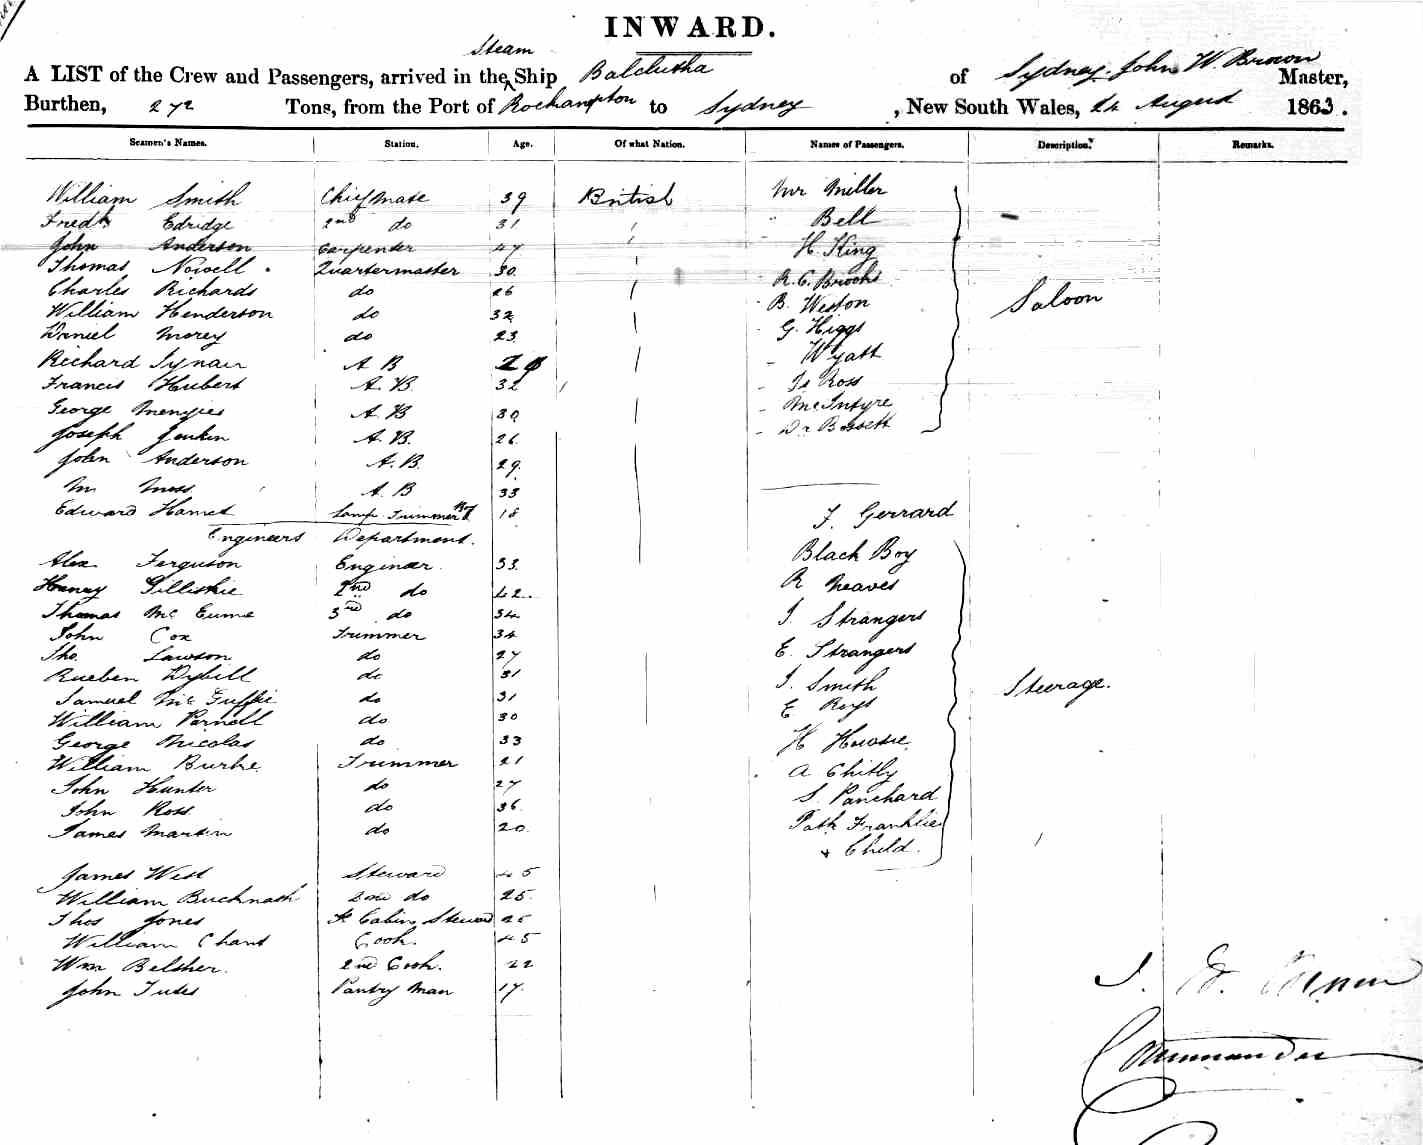 INWARD.
Steam
A LIST of the Crew and Passengers, arrived in the Ship Balclutha of Sydney John W. Brown Master,
Burthen, 272 Tons, from the Port of Rockhampton to Sydney, New South Wales, 24 August 1863.
Seamen's Names. Station. Age. Of what Nation. Names of Passengers. Description. Remarks.
William Smith Chief Mate 39 British Mr Miller
Fredk Edridge 2nd do 31 Bell
John Anderson Carpenter 47 H. King
Thomas Nowell Quartermaster 30 R. C. Brooks
Charles Richards do 26 B. Weston Saloon
William Henderson do 32 G. Higgs
Daniel Morey do 23 Wyatt
Richard A B Js Ross
Francis Hubert A. B. 32 McIntyre
George Menzies A. B 30 Dr Bassett
Joseph Jenkin A. B. 26
John Anderson A. B. 29
M. Moss A. B 33
Edward Hamet Lamp Trimmer 18 J. Gerrard
Engineers Department.
Alex Ferguson Engineer 33 Black Boy
Henery Gilliskie 2nd do 42 R Neaves
Thomas Mc 3rd do 34 J. Strangers
John Cox Trimmer 34 E. Strangers
Tho. Lawson do 27
Rueben Dybill do 31 J. Smith Steerage.
Samuel McGuffie do 31 E Roys
William Parnell do 30
George Nicolas do 33 H
William Burke Trimmer 21 A Chitly
John Hunter do 27 S. Panchard
John Ross do 36 Patk Franklie
James Martin do 20 + Child.
James West Steward 45
William Bucknash 2nd do 25
Thos Jones Ft Cabin Steward 25
William Chant Cook. 45
Wm Belsher. 2nd Cook. 22
John Tudes Pantry Man 17
J. W. Brown
Commander